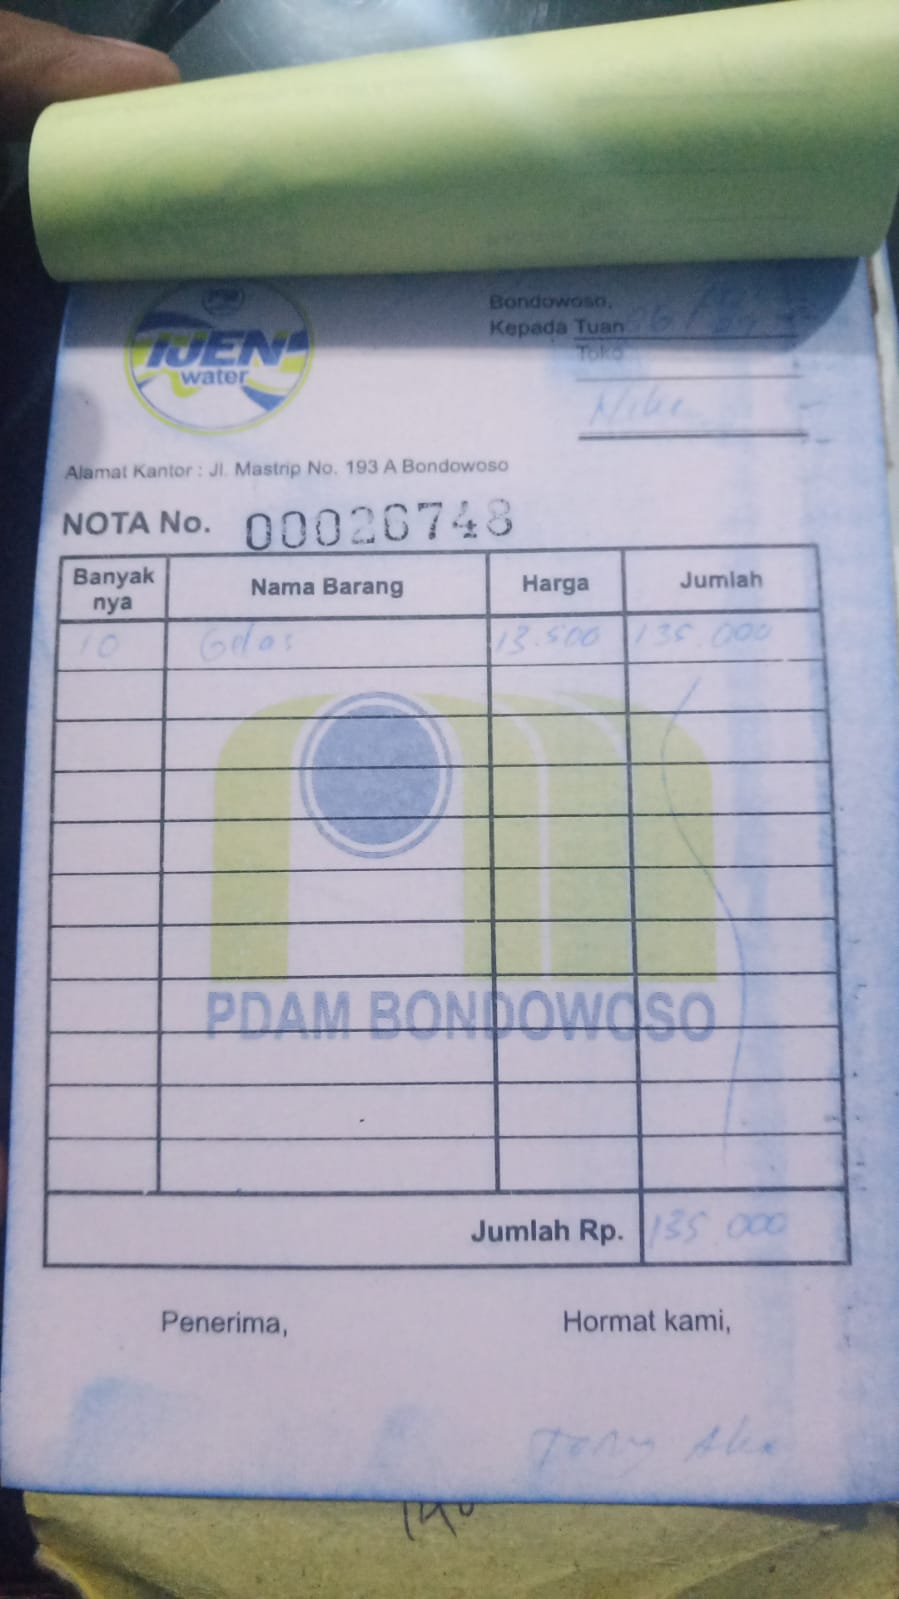 IJEN
water
Bondowoso,
Kepada Tuan
Toko
Alamat Kantor : Jl. Mastrip No. 193 A Bondowoso
NOTA No. 00026748
Banyak nya Nama Barang Harga Jumlah
10 Gelas 13.500 135.000
PDAM BONDOWOSO
Jumlah Rp. 135.000
Penerima, Hormat kami,